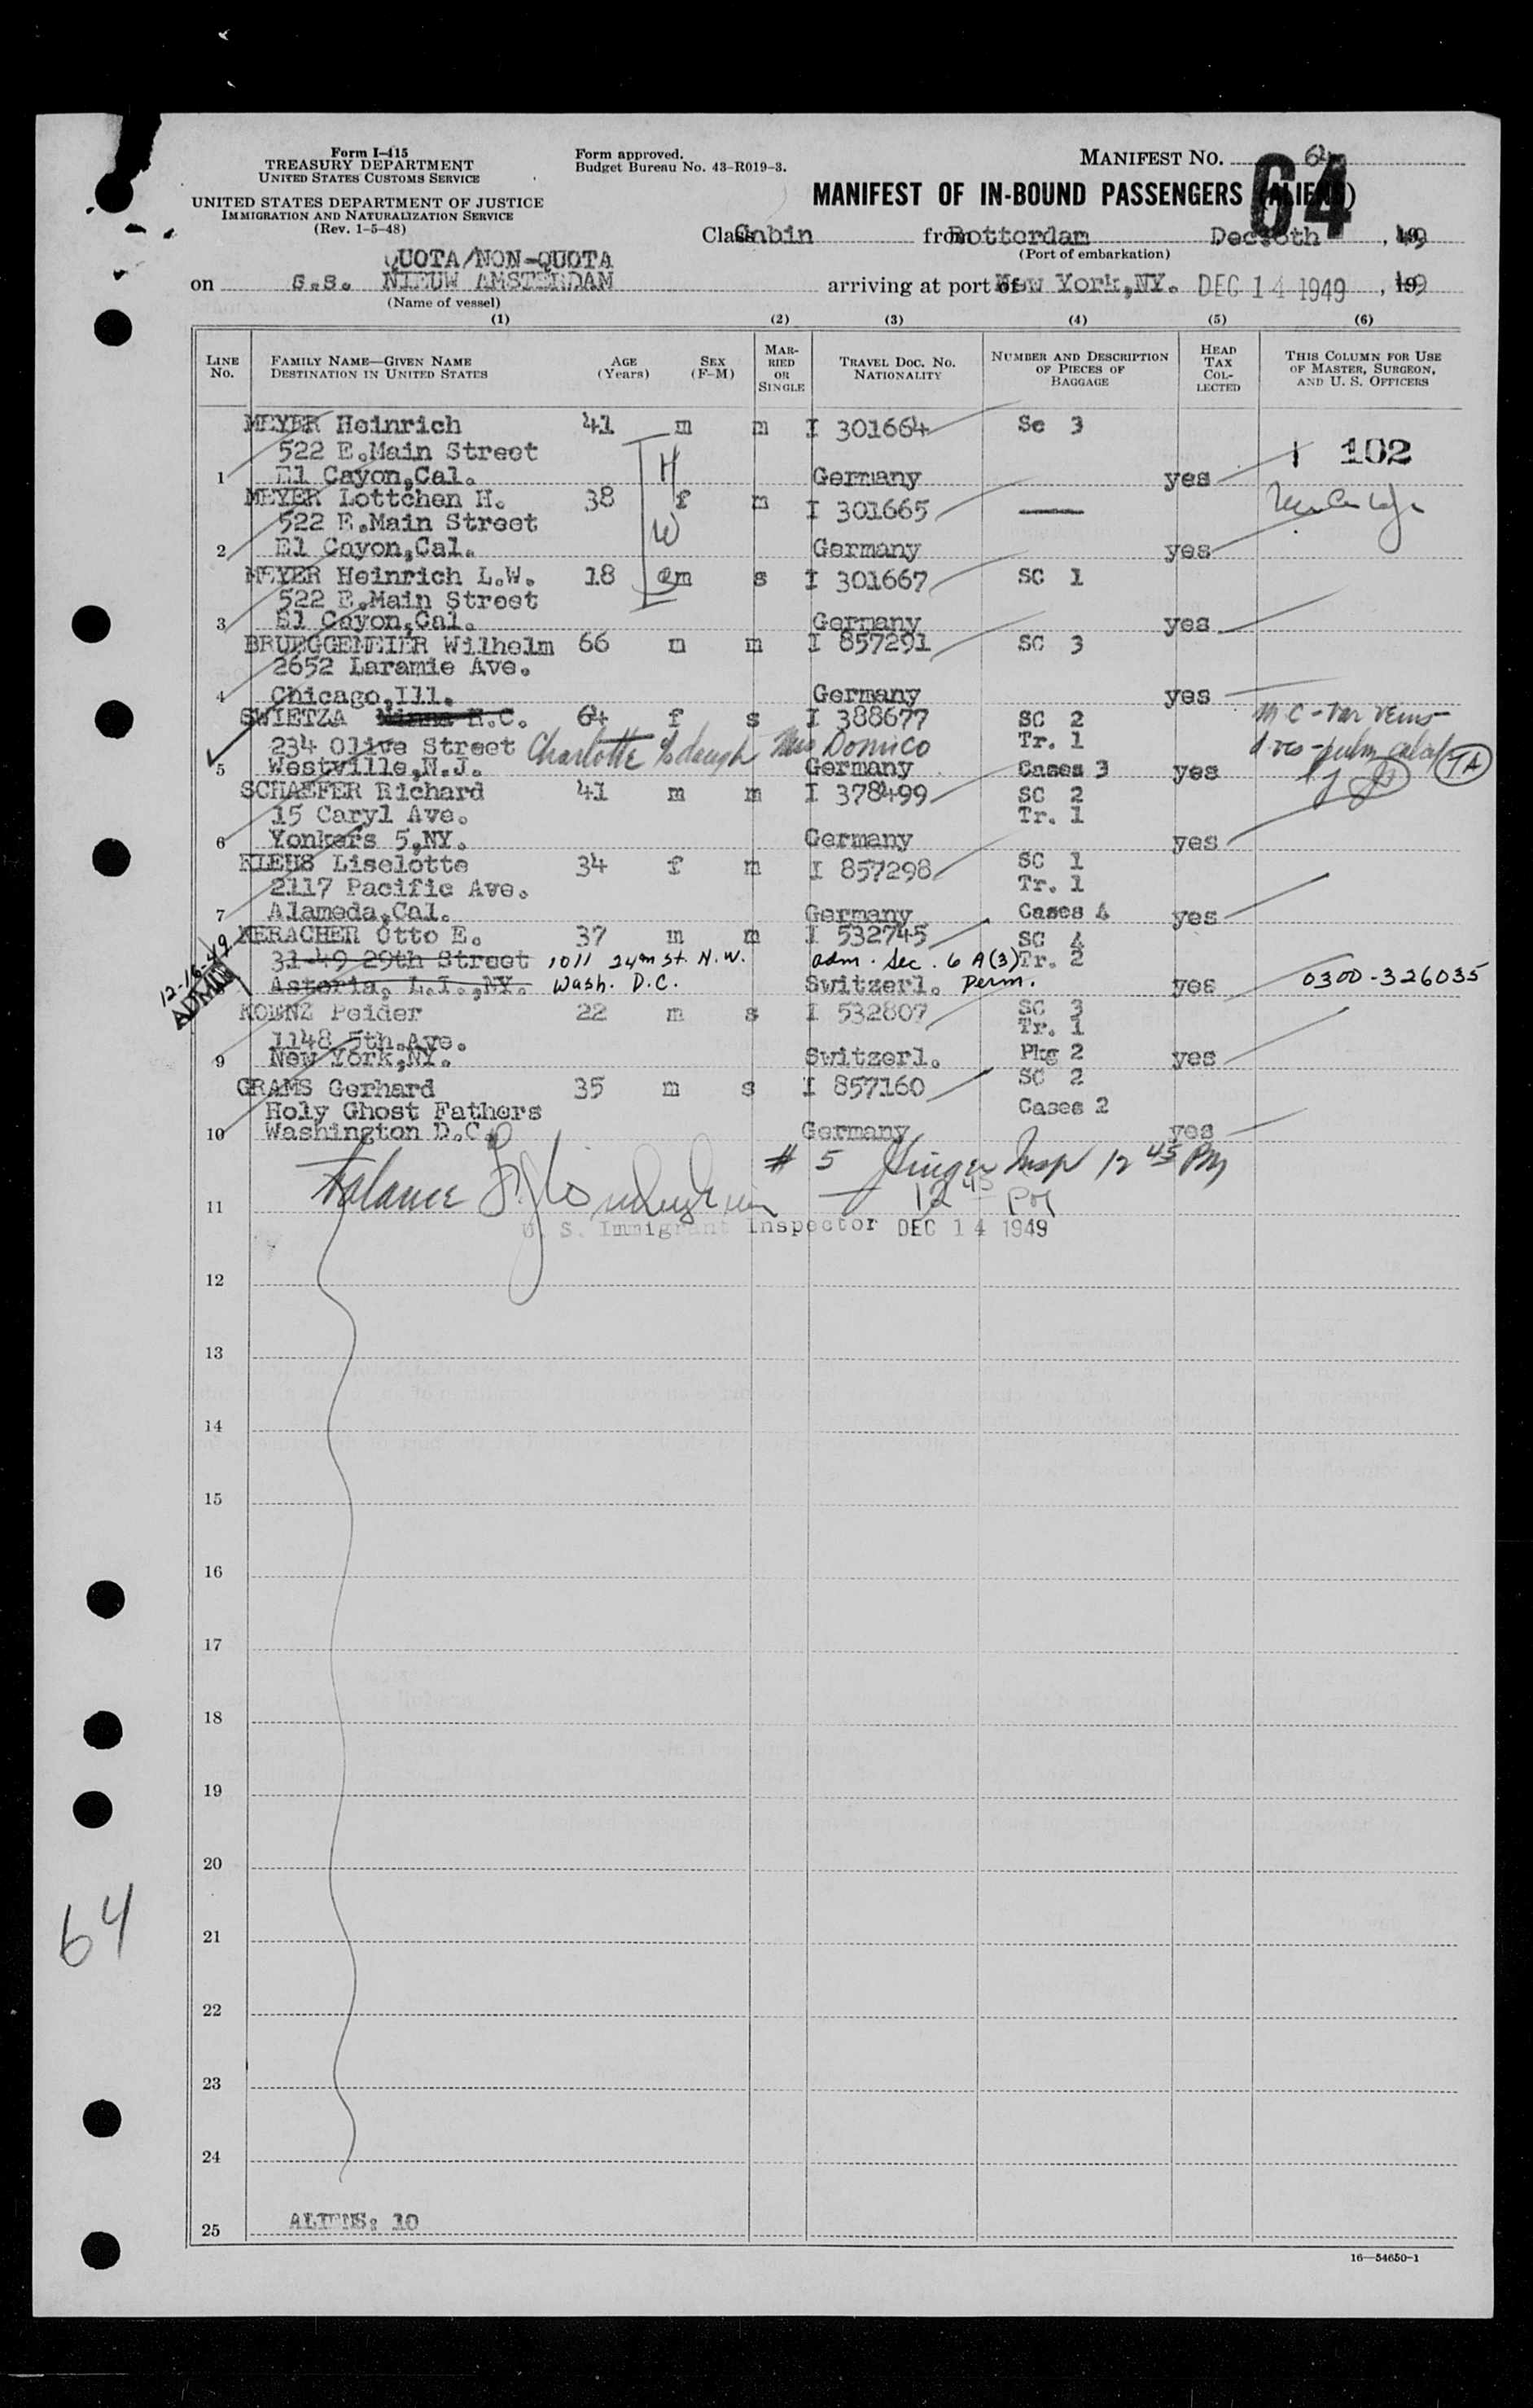 Form I-415
TREASURY DEPARTMENT
UNITED STATES CUSTOMS SERVICE
UNITED STATES DEPARTMENT OF JUSTICE
IMMIGRATION AND NATURALIZATION SERVICE
(Rev. 1-5-48)
Form approved.
Budget Bureau No. 43-R019-3.
MANIFEST NO. 64
64
MANIFEST OF IN-BOUND PASSENGERS (ALIENS)
Class Cabin from Rotterdam , 1949
(Port of embarkation)
QUOTA/NON-QUOTA
on s.s. NIEUW AMSTERDAM arriving at port of New York,NY. DEC 14 1949 , 1949
(Name of vessel)
(1) (2) (3) (4) (5) (6)
LINE No. FAMILY NAME—GIVEN NAME DESTINATION IN UNITED STATES AGE (Years) SEX (F-M) MARRIED OR SINGLE TRAVEL DOC. NO. NATIONALITY NUMBER AND DESCRIPTION OF PIECES OF BAGGAGE HEAD TAX COLLECTED THIS COLUMN FOR USE OF MASTER, SURGEON, AND U. S. OFFICERS
MEYER Heinrich 41 m m I 301664 Sc 3
522 E.Main Street H 1 102
1 El Cayon,Cal. Germany yes
MEYER Lottchen H. 38 f m I 301665
522 E.Main Street W
2 El Cayon,Cal. Germany yes
MEYER Heinrich L.W. 18 m s I 301667 SC 1
522 E.Main Street
3 El Cayon,Cal. Germany yes
BRUEGGEMEIER Wilhelm 66 m m I 857291 SC 3
2652 Laramie Ave.
4 Chicago,Ill. Germany yes
SWIETZA Minna H.C. 64 f s I 388677 SC 2
234 Olive Street Charlotte Mrs Domico Tr. 1
5 Westville,N.J. Germany Cases 3 yes
SCHAEFER Richard 41 m m I 378499 SC 2
15 Caryl Ave. Tr. 1
6 Yonkers 5,NY. Germany yes
KLEHS Liselotte 34 f m I 857298 SC 1
2117 Pacific Ave. Tr. 1
7 Alameda,Cal. Germany Cases 4 yes
MERACHER Otto E. 37 m m I 532745 SC 4
31-49 29th Street 1011 24th St. N.W. adm. Sec. 6 A(3) Tr. 2
12-16-49 ADMIN Astoria, L.I.,NY. Wash. D.C. Switzerl. Perm. yes 0300-326035
KOENZ Peider 22 m s I 532807 SC 3
1148 5th.Ave. Tr. 1
9 New York,NY. Switzerl. Pkg 2 yes
GRAMS Gerhard 35 m s I 857160 SC 2
Holy Ghost Fathers Cases 2
10 Washington D.C. Germany yes
# 5 Insp 12 45 PM
11 Balance 12 45 PM
U. S. Immigrant Inspector DEC 14 1949
12
13
14
15
16
17
18
19
20
64
21
22
23
24
25 ALIENS: 10
16—54650-1